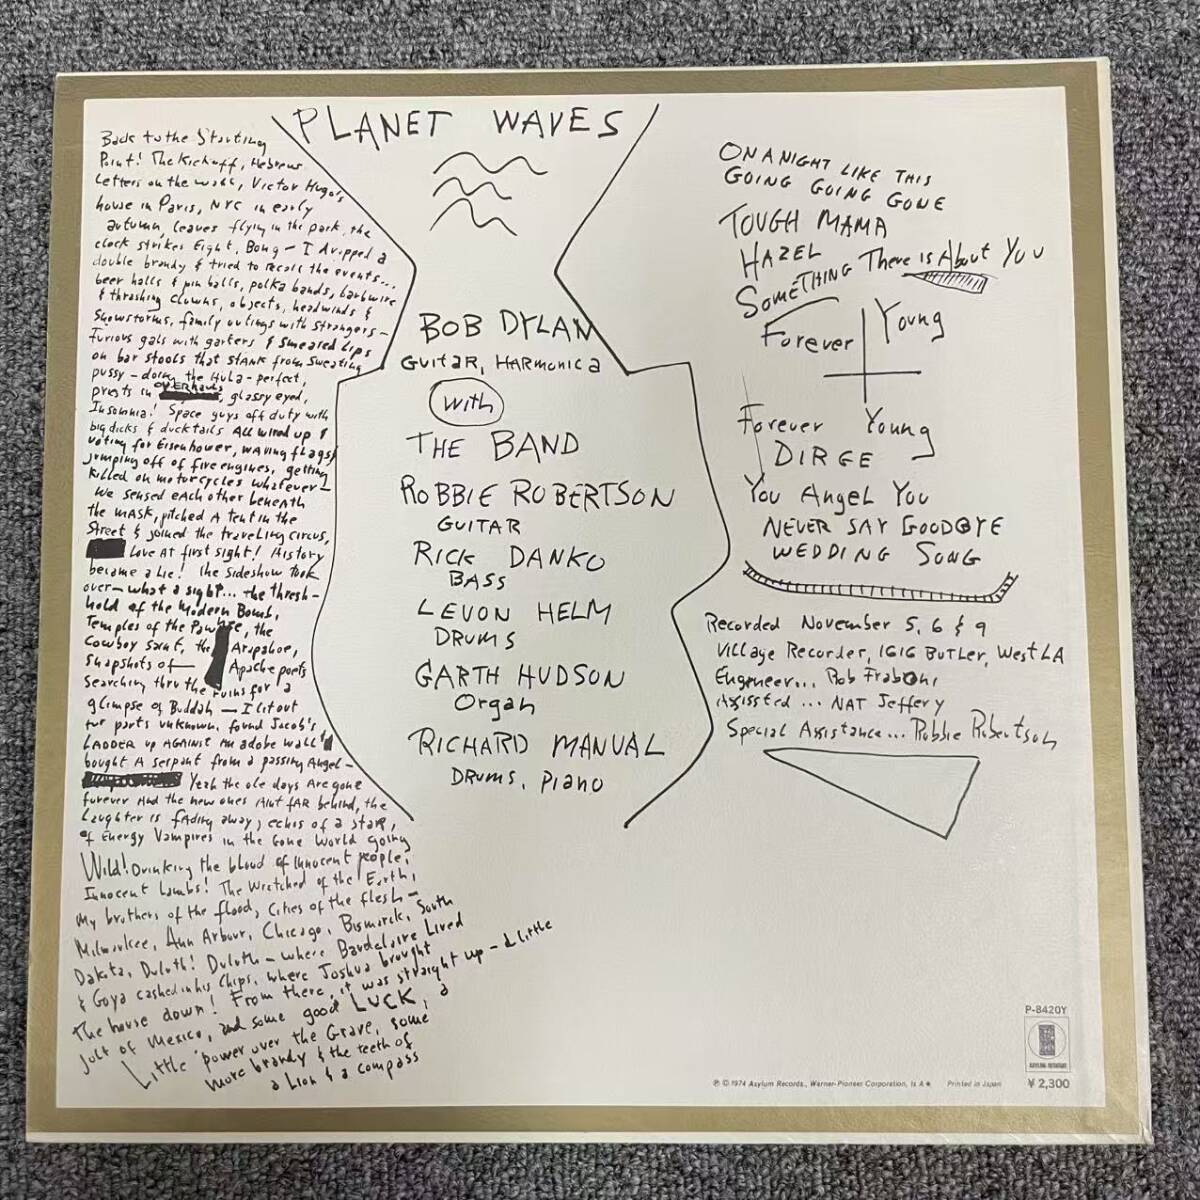 PLANET WAVES
Back to the Starting
Point! The Kickoff, Hebrew
Letters on the wall, Victor Hugo's
house in Paris, NYC in early
autumn, leaves flying in the park, the
clock strikes Eight, Bong - I dropped a
double brandy & tried to recall the events...
beer halls & pin balls, polka bands, barbwire
& thrashing clowns, objects, headwinds &
snowstorms, family outings with strangers -
Furious gals with garters & smeared Lips
on bar stools that stank from sweating
pussy - doing the Hula - perfect,
priests in overhauls, glassy eyed,
Insomnia! Space guys off duty with
big dicks & ducktails All wired up &
voting for Eisenhower, waving flags &
jumping off of fire engines, getting
killed on motorcycles whatever -
We sensed each other beneath
the mask, pitched a tent in the
Street & joined the traveling circus,
Love at first sight! History
became a lie! the sideshow took
over - what a sight... the thresh-
hold of the Modern Bomb,
Temples of the Pawnee, the
Cowboy Saint, the Arapahoe,
snapshots of Apache poets
searching thru the ruins for a
glimpse of Buddah - I lit out
for parts unknown, found Jacob's
LADDER up AGAINST an adobe wall &
bought A serpant from a passing Angel -
Yeah the ole days Are gone
forever And the new ones Aint fAR behind, the
Laughter is fAding away, echos of a star,
of Energy Vampires in the Gone World going
Wild! Drinking the blood of innocent people,
Innocent Lambs! The Wretched of the Earth,
My brothers of the flood, Cities of the flesh -
Milwaukee, Ann Arbour, Chicago, Bismarck, South
Dakota, Duluth! Duluth - where Baudelaire Lived
& Goya cashed in his Chips, where Joshua brought
the house down! From there, it was straight up - a little
jolt of Mexico, and some good LUCK, a
Little power over the Grave, some
more brandy & the teeth of
a Lion & a compass
BOB DYLAN
GUITAR, HARMONICA
With
THE BAND
ROBBIE ROBERTSON
GUITAR
RICK DANKO
BASS
LEVON HELM
DRUMS
GARTH HUDSON
Organ
RICHARD MANUAL
DRUMS, Piano
ON A NIGHT LIKE THIS
GOING GOING GONE
TOUGH MAMA
HAZEL
SOMETHING There is About You
Forever Young
Forever Young
DIRGE
You Angel You
NEVER SAY GOODBYE
WEDDING SONG
Recorded November 5, 6 & 9
Village Recorder, 1616 BUTLER, West LA
Engineer... Rob Fraboni
Assissted... NAT Jeffery
Special Assistance... Robbie Robertson
P-8420Y
ASYLUM RECORDS
¥2,300
℗ © 1974 Asylum Records., Warner-Pioneer Corporation, Printed in Japan